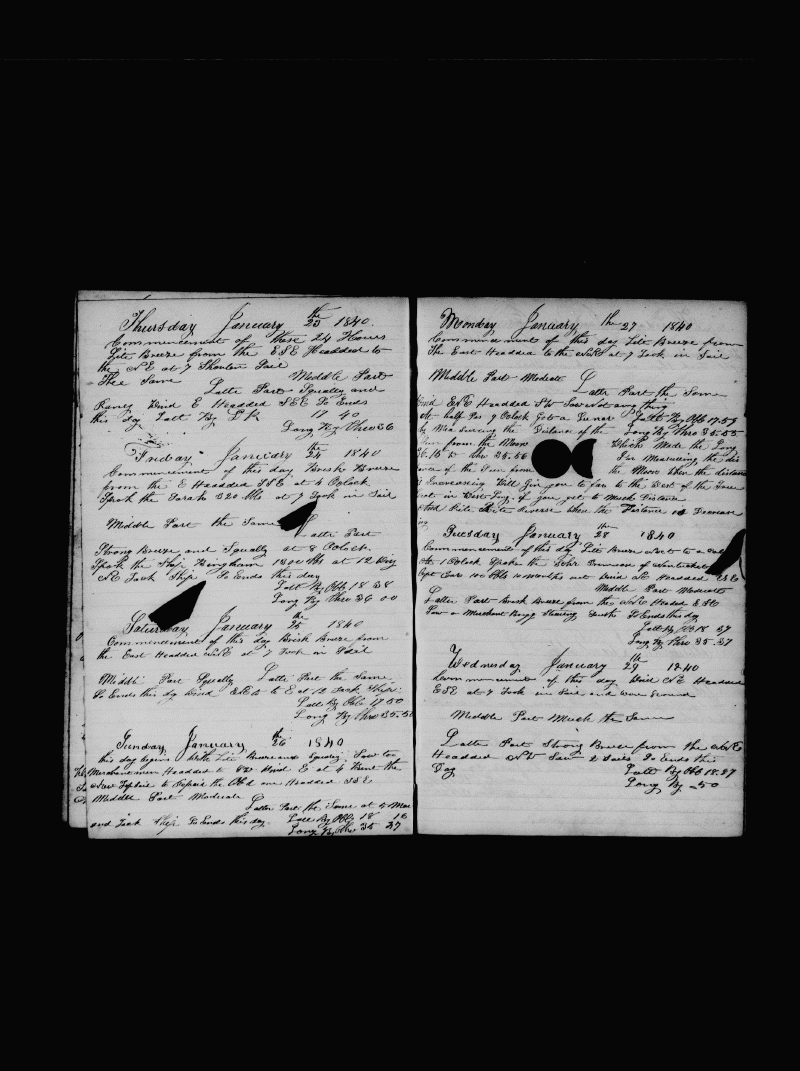 Thursday January 23 the 1840.
Commencement of these 24 Hours
Lite Breeze from the ESE Headded to
the NE at 7 Shorten Sail
Thee Same Middle Part
Latter Part Squally and
Raney Wind E Headded SSE So Ends
this Day Latt By D R 17 40
Long By Chro 36
Friday January 24 the 1840
Commencement of this day Brisk Breeze
from the E Headded SSE at 4 Oclock
Spok the Sarah 320 bbls at 7 Took in Sail
Middle Part the Same Latter Part
Strong Breeze and Squally at 8 Oclock
Spok the Ship Hingham 1300 bbls at 12 Wind
NE Tack Ship So Ends this day
Latt By Obs 18 38
Long By Chro 36 00
Saturday January 25 the 1840
Commencement of this day Brisk Breeze from
the East Headded NNE at 7 Took in Sail
Middle Part Squally Latter Part the Same
So Ends this day Wind ENE to E at 12 Tack Ship
Latt By Obs 17 50
Long By Chro 35.5
Sunday January 26 the 1840
this day begins With Lite Breeze and Squaley Saw two
Merchantmen Headded to Wind E at 4 the
to Repair the Old one Headded SSE
Middle Part Moderate Latter Part the Same at 5
and Tack Ship So Ends this day Latt By Obs 18 16
Long By Chro 35 27
Monday January the 27 1840
Commencement of this day Lite Breeze from
The East Headded to the at 7 Took in Sail
Middle Part Moderate Latter Part the Same
Wind ESE Headded Saw Not any thing
half Pas 9 Oclock Got a Lunar Latt By Obb 17.59
by Measureing the Distance of the Long By Chro 35.55
Sun from the Moon Which Made the Long
36.15 Chro 35.56 For Measureing the dis
of the Sun from the Moon When the distance
Increaseing Will Give you to far to the West of the true
in West Long. if you get to Much Distance
Reverse When the Distance is Decrease
ing
Tuesday January 28 the 1840
Commencement of this day Lite Breeze
At 1 Oclock Spoke the Schr of Nantucket
Capt 100 Bbls 10 months out Wind Headded ESE
Middle Part Moderate
Latter Part Brisk Breeze from the Headed ESE
Saw a Merchant Brigg Stearing South So Ends this day
Latt By Obs 18 37
Long By Chro 35.37
Wednesday January 29 the 1840
Commencement of this day Wind NE Headded
ESE at 7 Took in Sail and Wore Around
Middle Part Much the Same
Latter Part Strong Breeze from the
Headded Saw 2 Sails So Ends this
Day Latt By Obb 18.27
Long By 50